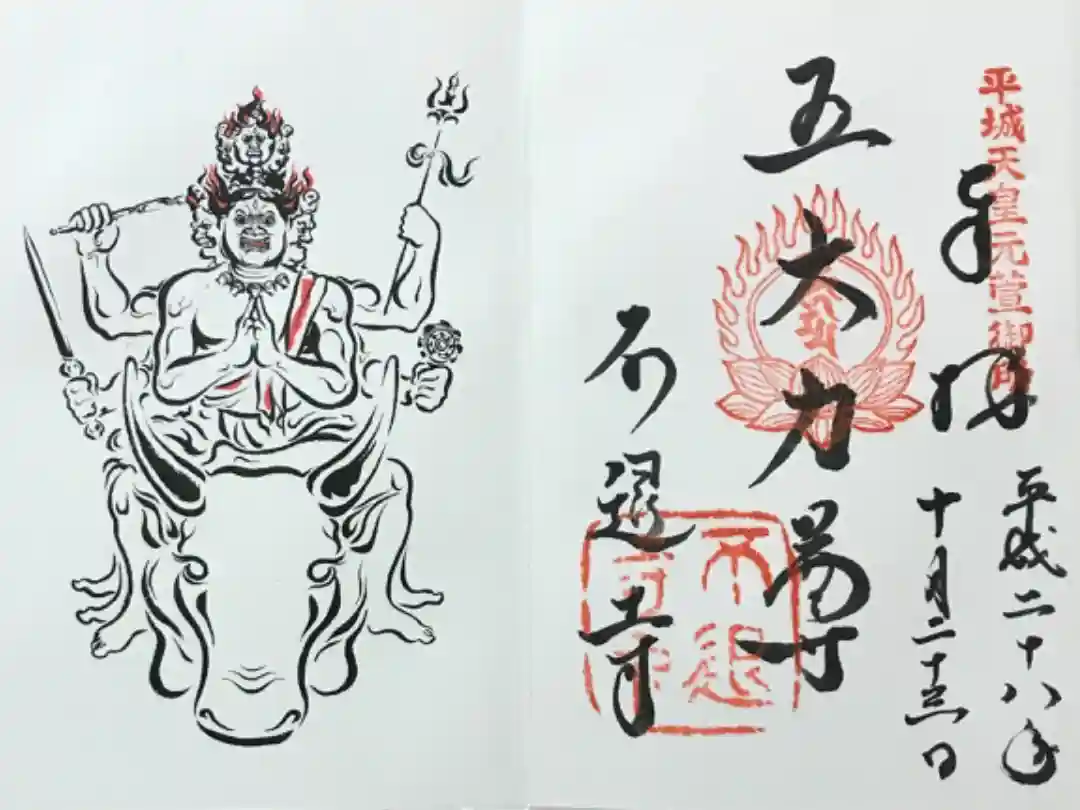 平城天皇元萱御所
奉拝
平成二十八年
十月二十三日
五大力尊
不退寺
不退